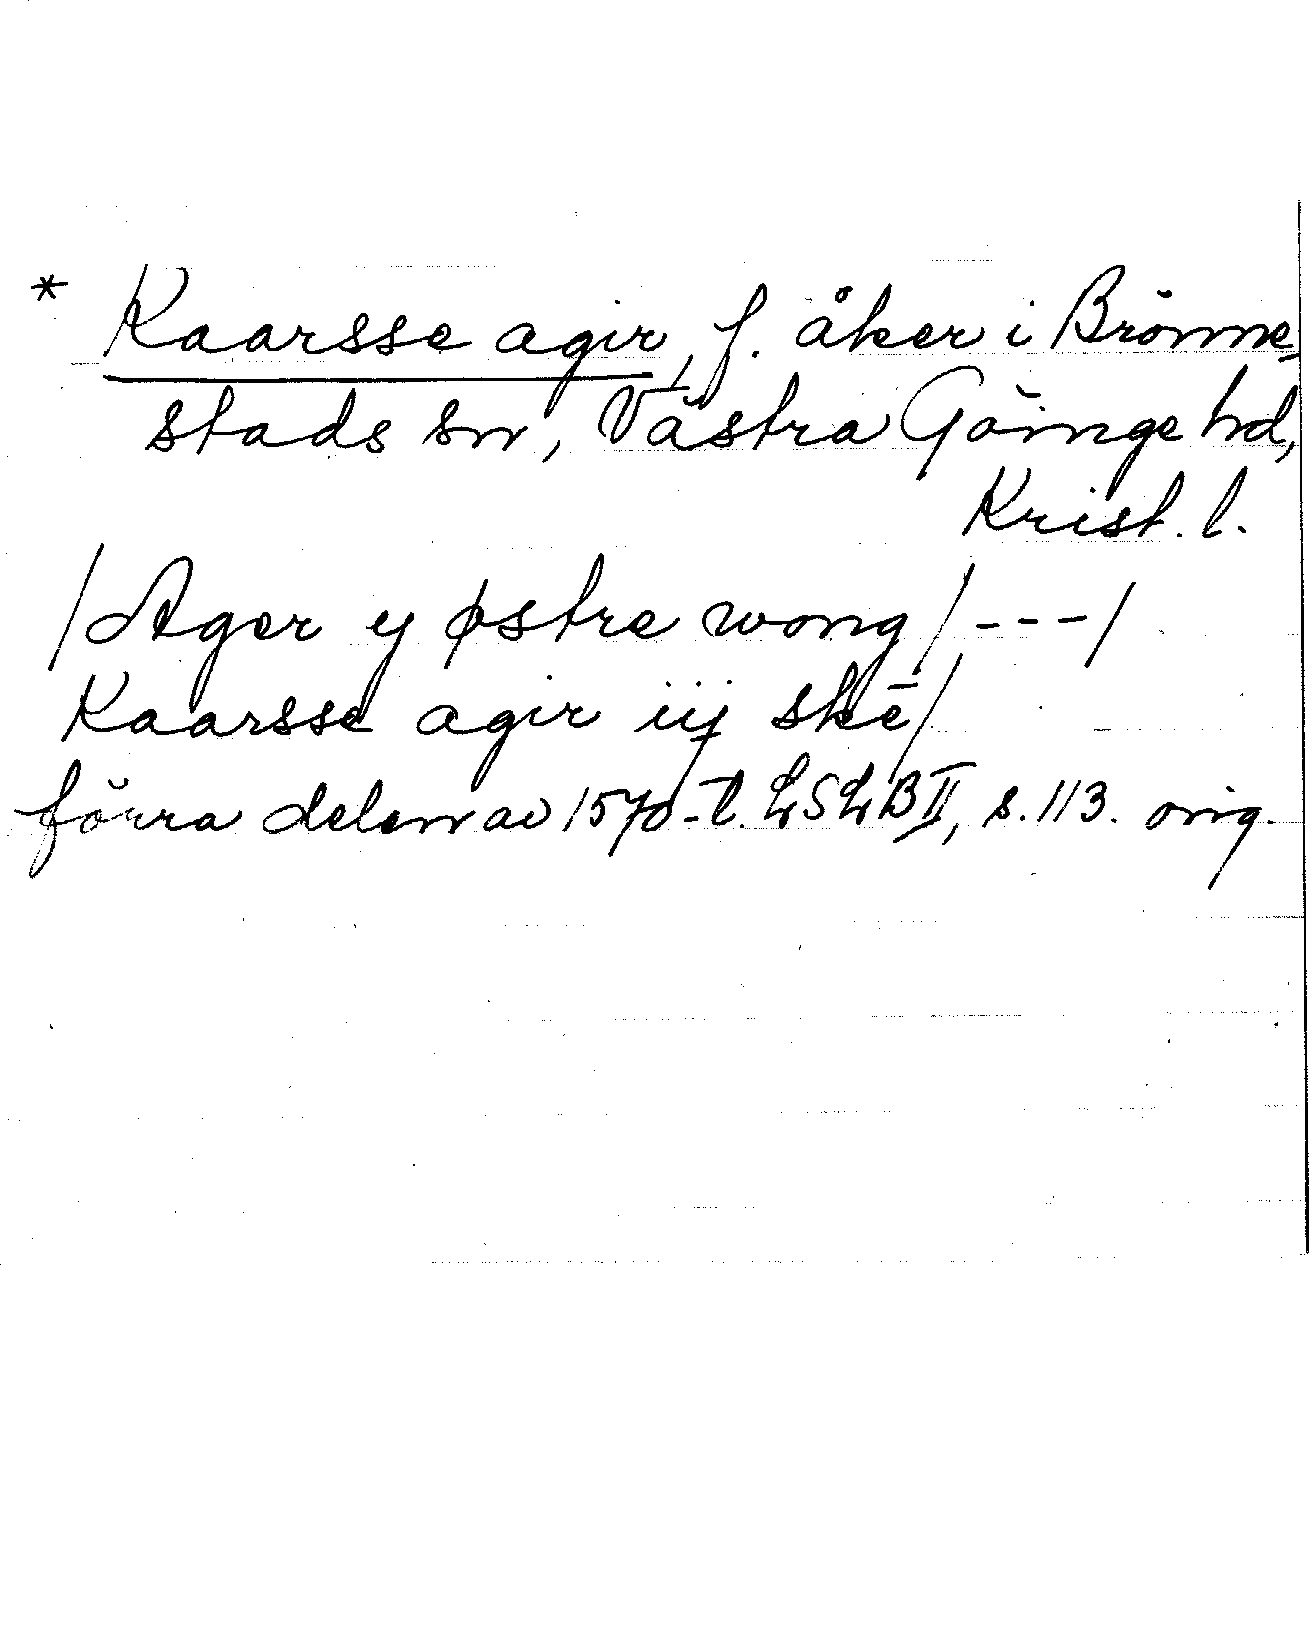 * Kaarsse agir, f. åker i Brönne-
stads sn, Västra Göinge hd,
Krist. l.
/Ager y østre wong/---/
Kaarsse agir iij skē/
förra delen av 1570-t. LSLB II, s. 113. orig.